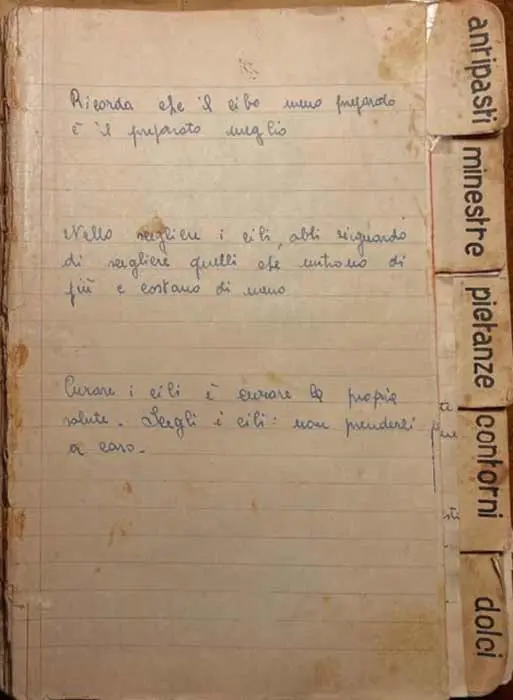 Ricorda che il cibo meno preparato
è il preparato meglio
Nello scegliere i cibi, abbi riguardo
di scegliere quelli che nutrono di
più e costano di meno
Curare i cibi è curare la propria
salute. Scegli i cibi: non prenderli
a caso.
antipasti
minestre
pietanze
contorni
dolci